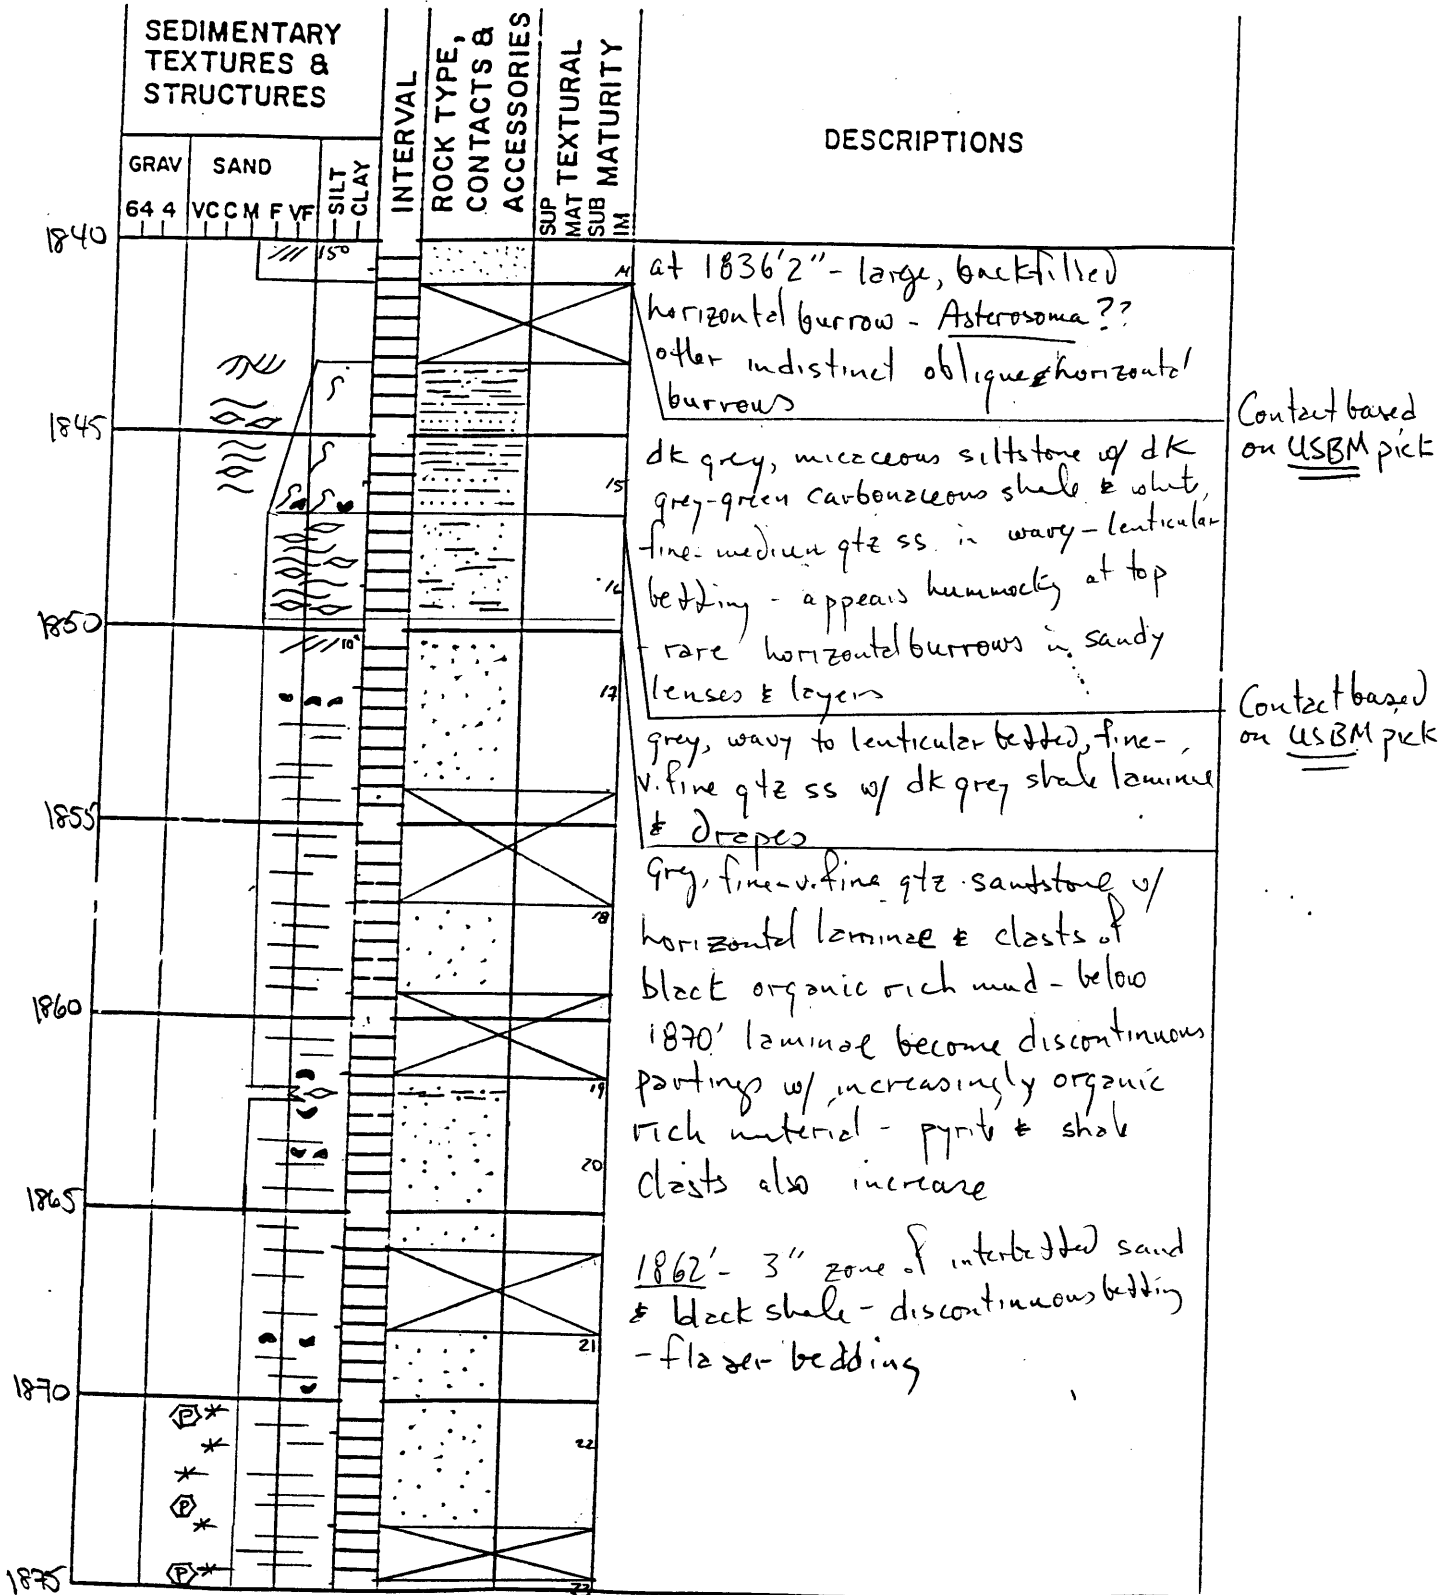 SEDIMENTARY
TEXTURES &
STRUCTURES
INTERVAL
ROCK TYPE,
CONTACTS &
ACCESSORIES
TEXTURAL
MATURITY
DESCRIPTIONS
GRAV SAND SILT CLAY
64 4 VC C M F VF
SUP MAT SUB IM
1840
15°
at 1836'2" - large, backfilled
horizontal burrow - Asterosoma??
other indistinct oblique & horizontal
burrows
Contact based
on USBM pick
1845
dk grey, micaceous siltstone w/ dk
grey-green carbonaceous shale & white,
fine-medium qtz ss. in wavy-lenticular
bedding - appears hummocky at top
- rare horizontal burrows in sandy
lenses & layers
15
16
Contact based
on USBM pick
1850
10°
17
grey, wavy to lenticular bedded, fine-
v.fine qtz ss w/ dk grey shale laminae
& drapes
1855
Grey, fine-v.fine qtz sandstone w/
horizontal laminae & clasts of
black organic rich mud - below
1870' laminae become discontinuous
partings w/ increasingly organic
rich material - pyrite & shale
clasts also increase
18
1860
19
20
1865
1862' - 3" zone of interbedded sand
& black shale - discontinuous bedding
- flaser bedding
21
1870
P
22
P
P
1875
23